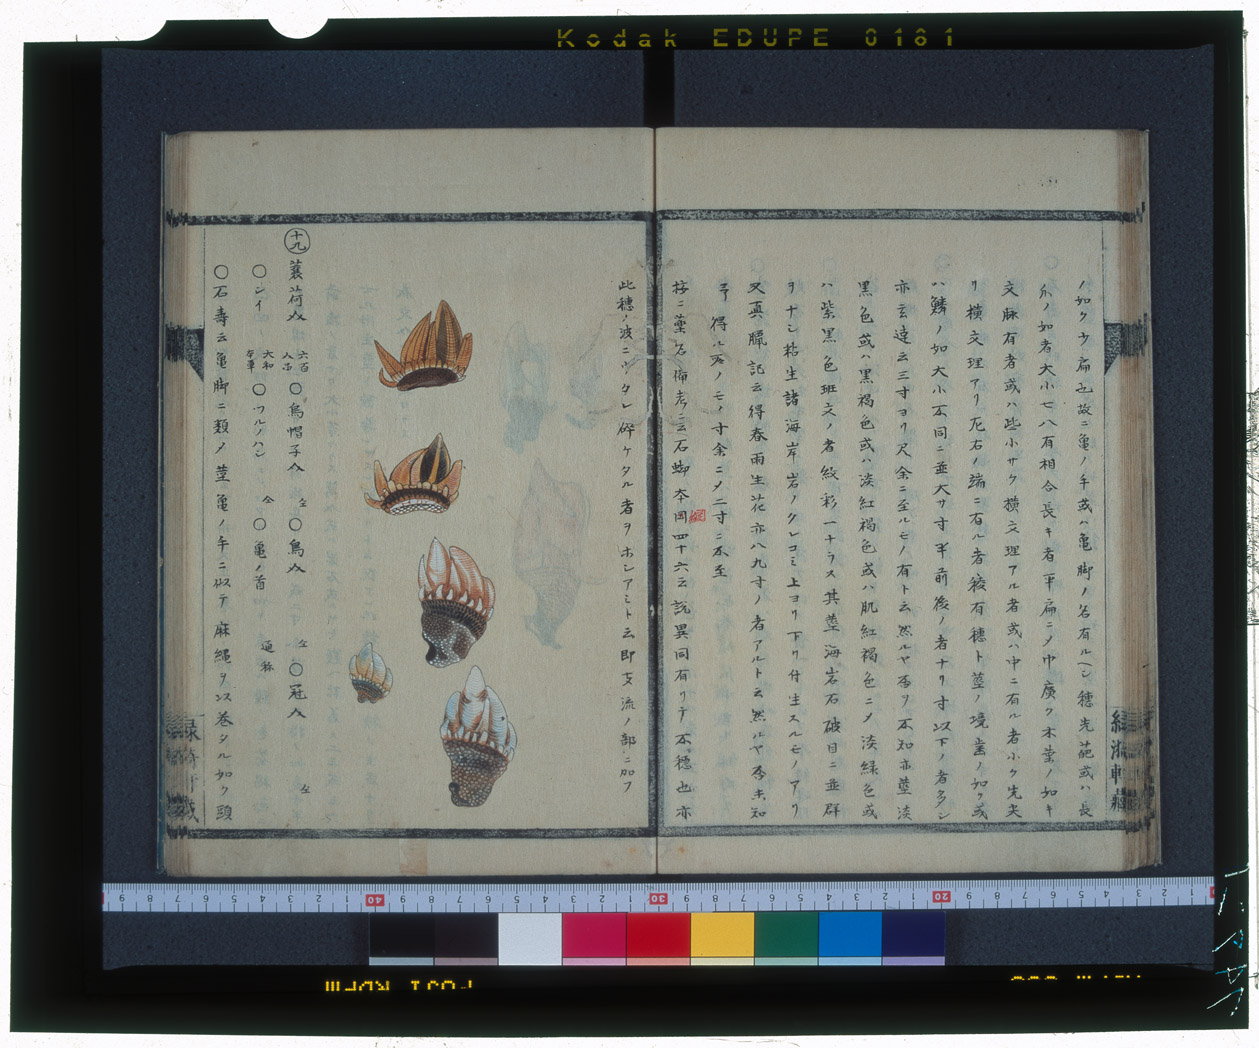 Kodak EDUPE 0181
ノ如ク少扁也故ニ亀ノ手或ハ亀脚ノ名有ルヘシ穂先葩或ハ長
爪ノ如者大小七八有相合長キ者平扁ニメ巾廣ク木葉ノ如キ
文脉有者或ハ些小サク横文理アル者或ハ中ニ有ル者小ク先尖
リ横文理アリ左右ノ端ニ有ル者稜有穂ト莖ノ境歯ノ如ク或
ハ鱗ノ如大小不同ニ並大サ寸半前後ノ者ナリ寸以下ノ者多シ
亦云達云三寸ヨリ尺余ニ至ルモノ有ト云然ルヤ否ヲ不知亦莖淡
黒色或ハ黒褐色或ハ淡紅褐色或ハ肌紅褐色ニメ淡緑色或
ハ紫黒色斑文ノ者紋彩一ナラス其莖海岩石破目ニ並群
ヲナシ粘生諸海岸岩ノクレコミ上ヨリ下リ付生スルモノアリ
又眞臘記云得春雨生花亦八九寸ノ者アルト云然ルヤ否未知
予得ル処ノモノ寸余ニメ二寸ニ不至
按ニ菫名備考ニ云石蜐本岡四十六云説異同有リテ不穏也亦
綱
此穂ノ波ニウタレ碎ケタル者ヲホシアミト云即支流ノ部ニ加フ
十九 蓑荷介 六百介品 〇烏帽子介 仝 〇烏介 仝 〇冠介 仝
〇シイ 大和本草 〇ツルノハシ 仝 〇亀ノ首 通称
〇石壽云亀脚ニ類ノ莖亀ノ手ニ似テ麻縄ヲ以巻タル如ク頭
40
30
20